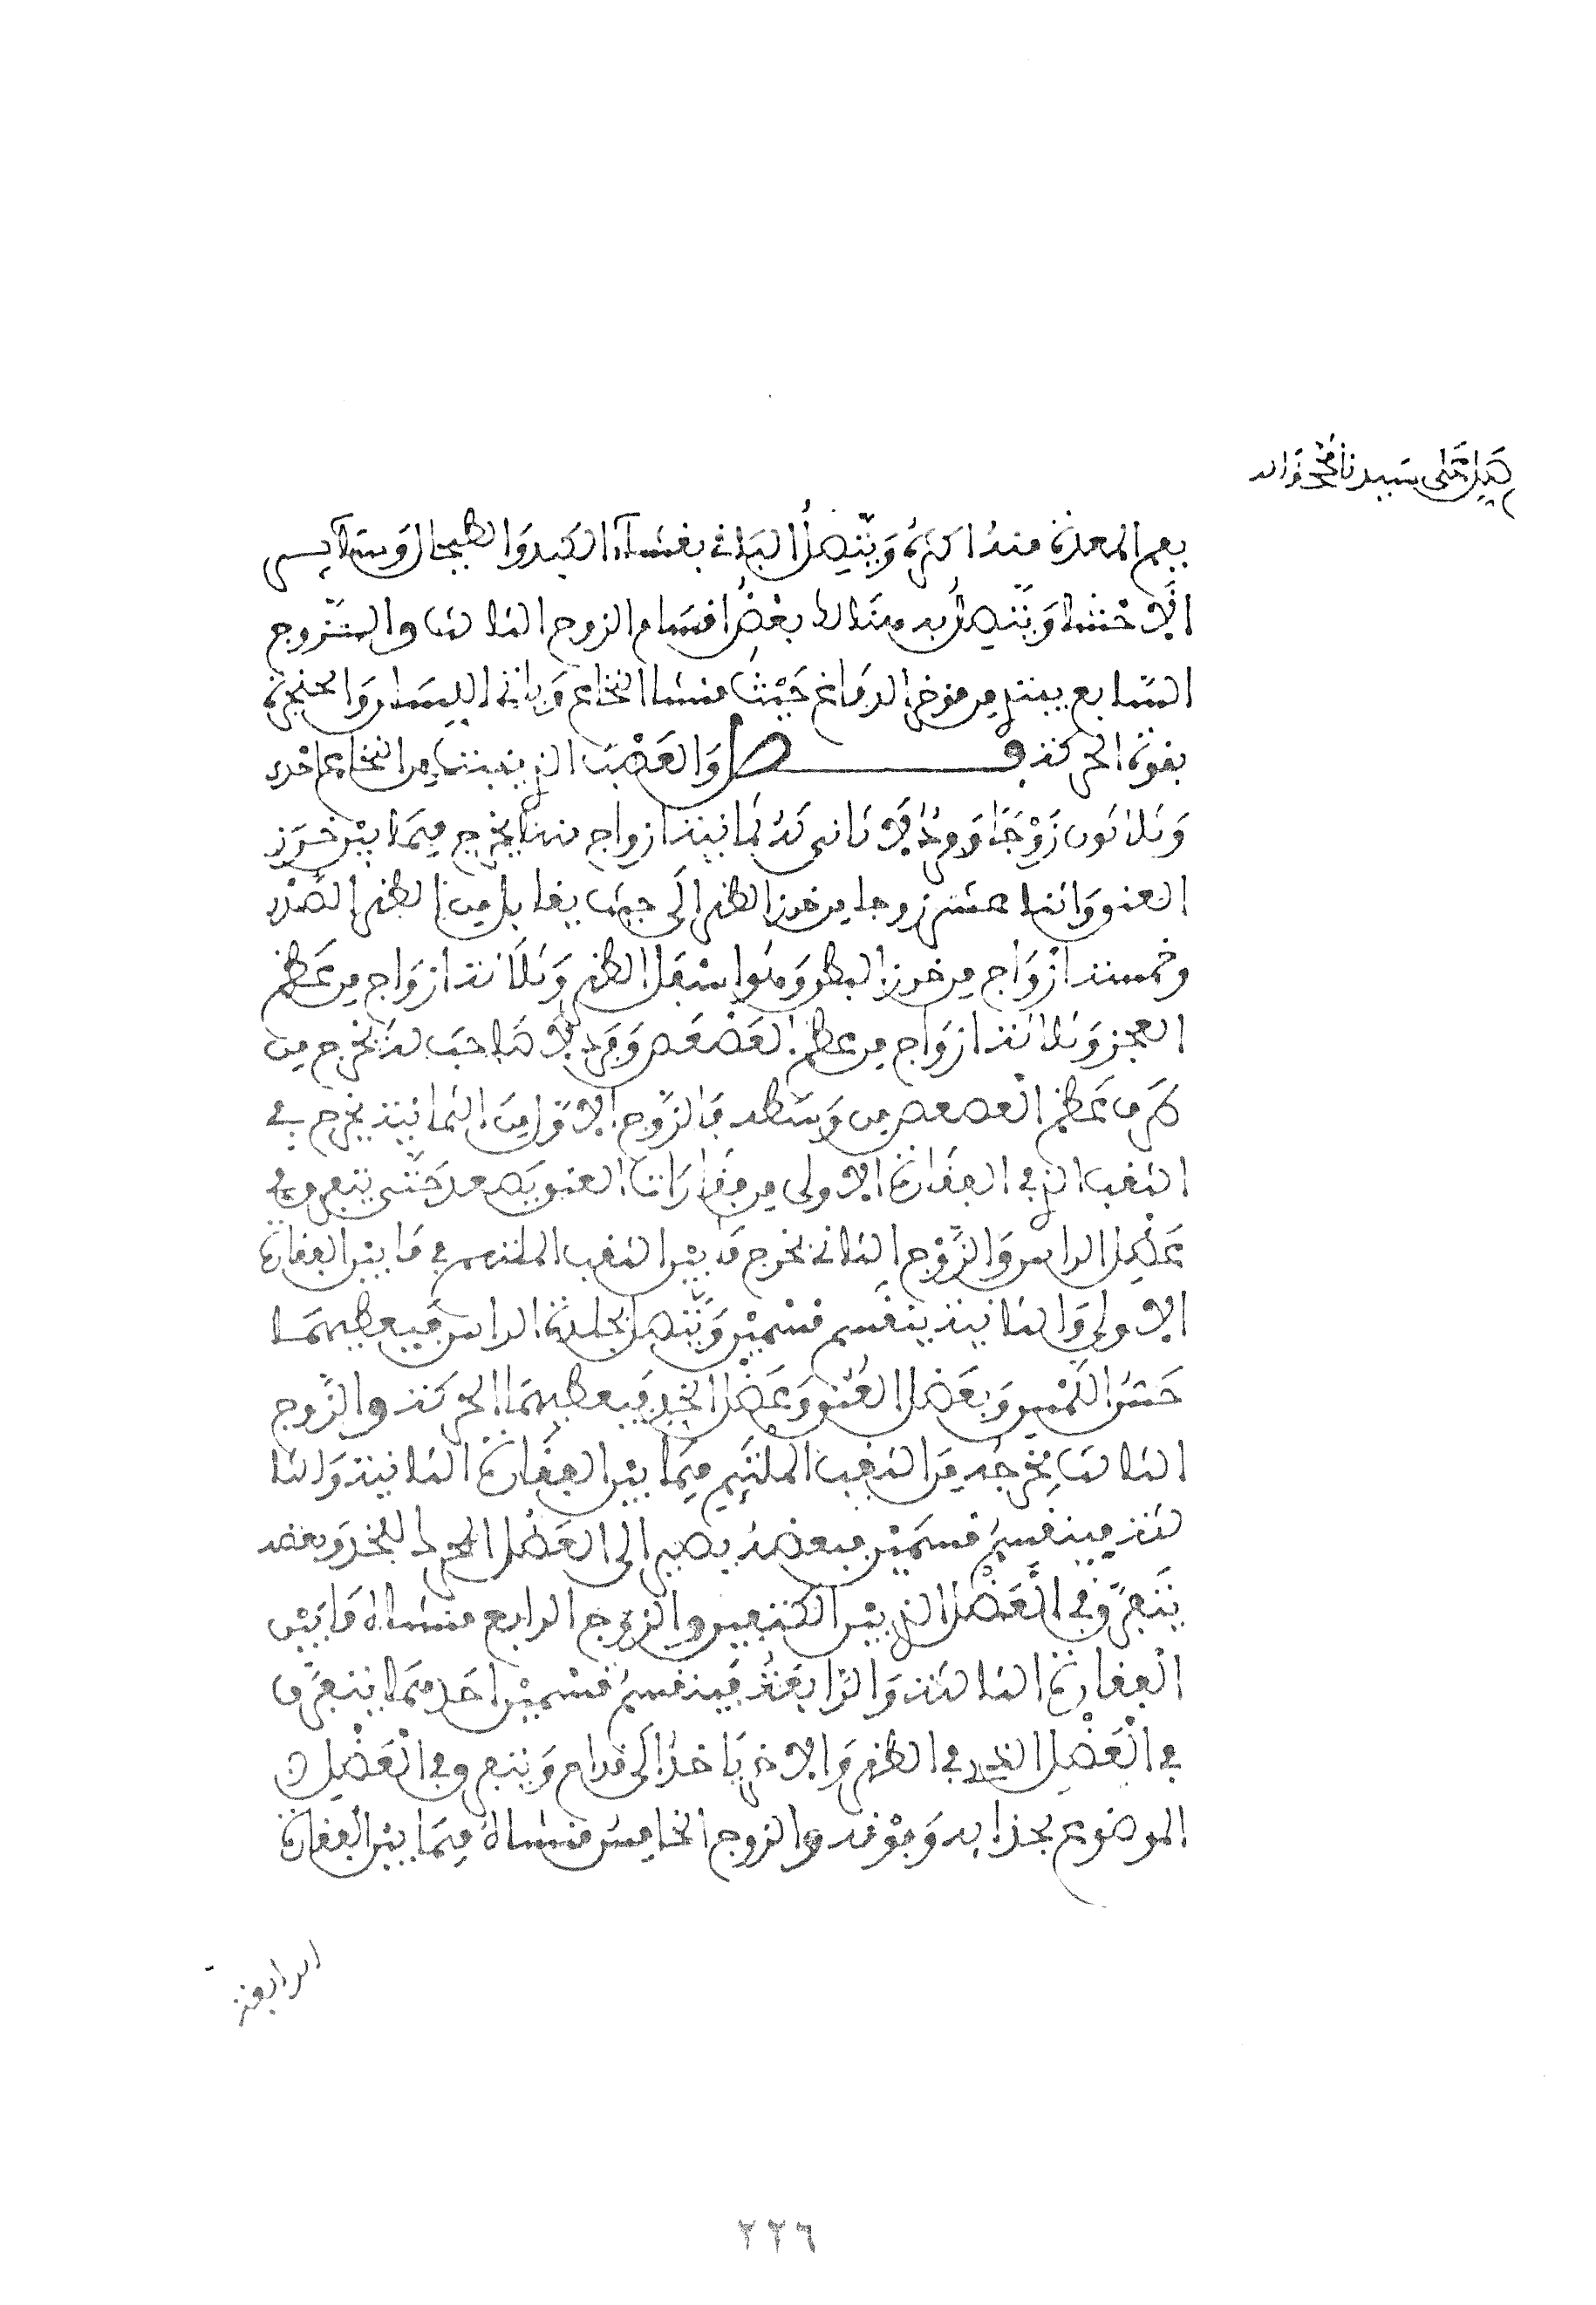 صل على سيدنا محمد وآله
بفم المعدة منه أكثره ويتصل الباقي بغشاء الكبد والطحال وسائر
الأحشا ويتصل به هنالك بعض أقسام الزوج الثالث والزوج
السابع يبتدئ من مؤخر الدماغ حيث منشا النخاع وياتي اللسان والحنجرة
بقوة الحركة فصل والعصب الذي ينبت من النخاع احد
وثلاثون زوجا وفرد لا ثاني له ثمانية ازواج منها يخرج فيما بين خرز
العنق واثنا عشر زوجا من خرز الظهر الى حيث يقابل من الظهر الصدر
وخمسة ازواج من خرز البطن وهو اسفل الظهر وثلاثة ازواج من عظم
العجز وثلاثة ازواج من عظم العصعص وفرد لا صاحب له يخرج من
طرف عظم العصعص من وسطه فالزوج الاول من الثمانية يخرج في
الثقب الذي في الفقارة الاولى من فقارات العنق يصعد حتى يتفرق في
عضل الراس والزوج الثاني يخرج ما بين الثقب الملتئم في ما بين الفقارة
الاولى والثانية ينقسم قسمين ويتصل بجلدة الراس فيعطيهما
حس اللمس وبعضل العنق وعضل الخد فيعطيهما الحركة والزوج
الثالث مخرجه من الثقب الملتئم فيما بين الفقارة الثانية والثا
لثة فينقسم قسمين فبعضه يصير الى العضل المحرك للخد وبعضه
يتفرق في العضل الذي بين الكتفين والزوج الرابع منشاه ما بين
الفقارة الثالثة والرابعة فينقسم قسمين احدهما يتفرق
في العضل الذي في الظهر والاخر ياخذ الى قدام ويتفرق في العضل
الموضوع بحذايه وفوقه والزوج الخامس منشاه فيما بين الفقارة
الرابعة
٢٢٦